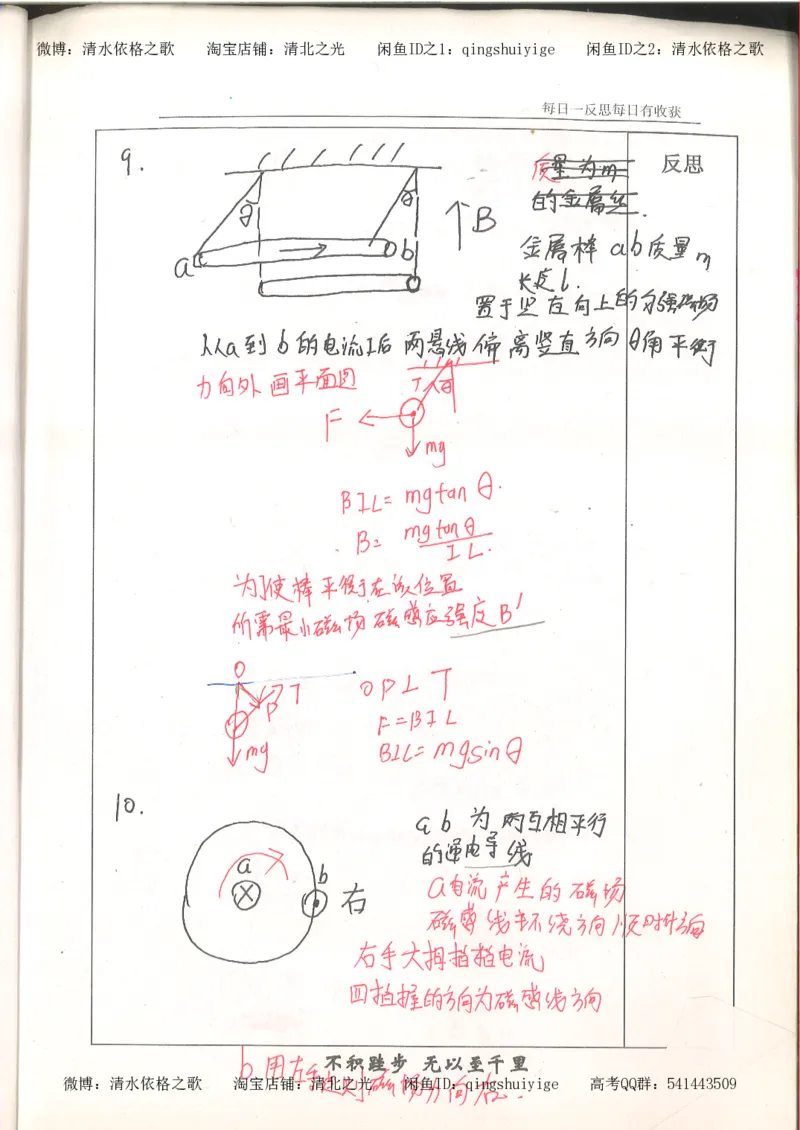 微博：清水依格之歌 淘宝店铺：清北之光 闲鱼ID之1：qingshuiyige 闲鱼ID之2：清水依格之歌
每日一反思每日有收获
9.
反思
质量为m
的金属丝.
θ θ
↑B
a b
金属棒 ab质量m
长度l.
置于竖直向上的匀强磁场
从a到b的电流I后 两悬线偏离竖直方向θ角平衡
力向外 画平面图
T θ
F
mg
BIL=mgtanθ.
B=mgtanθ/IL.
为了使棒平衡在该位置
所需最小磁场磁感应强度B'
O
T
P
mg
OP⊥T
F=BIL
BIL=mgsinθ
10.
a b 为两互相平行
的通电导线
a
b
右
a电流产生的磁场
磁感线环绕方向顺时针方向
右手大拇指指电流
四指握的方向为磁感线方向
不积跬步 无以至千里
微博：清水依格之歌 淘宝店铺：清北之光 闲鱼ID：qingshuiyige 高考QQ群：541443509